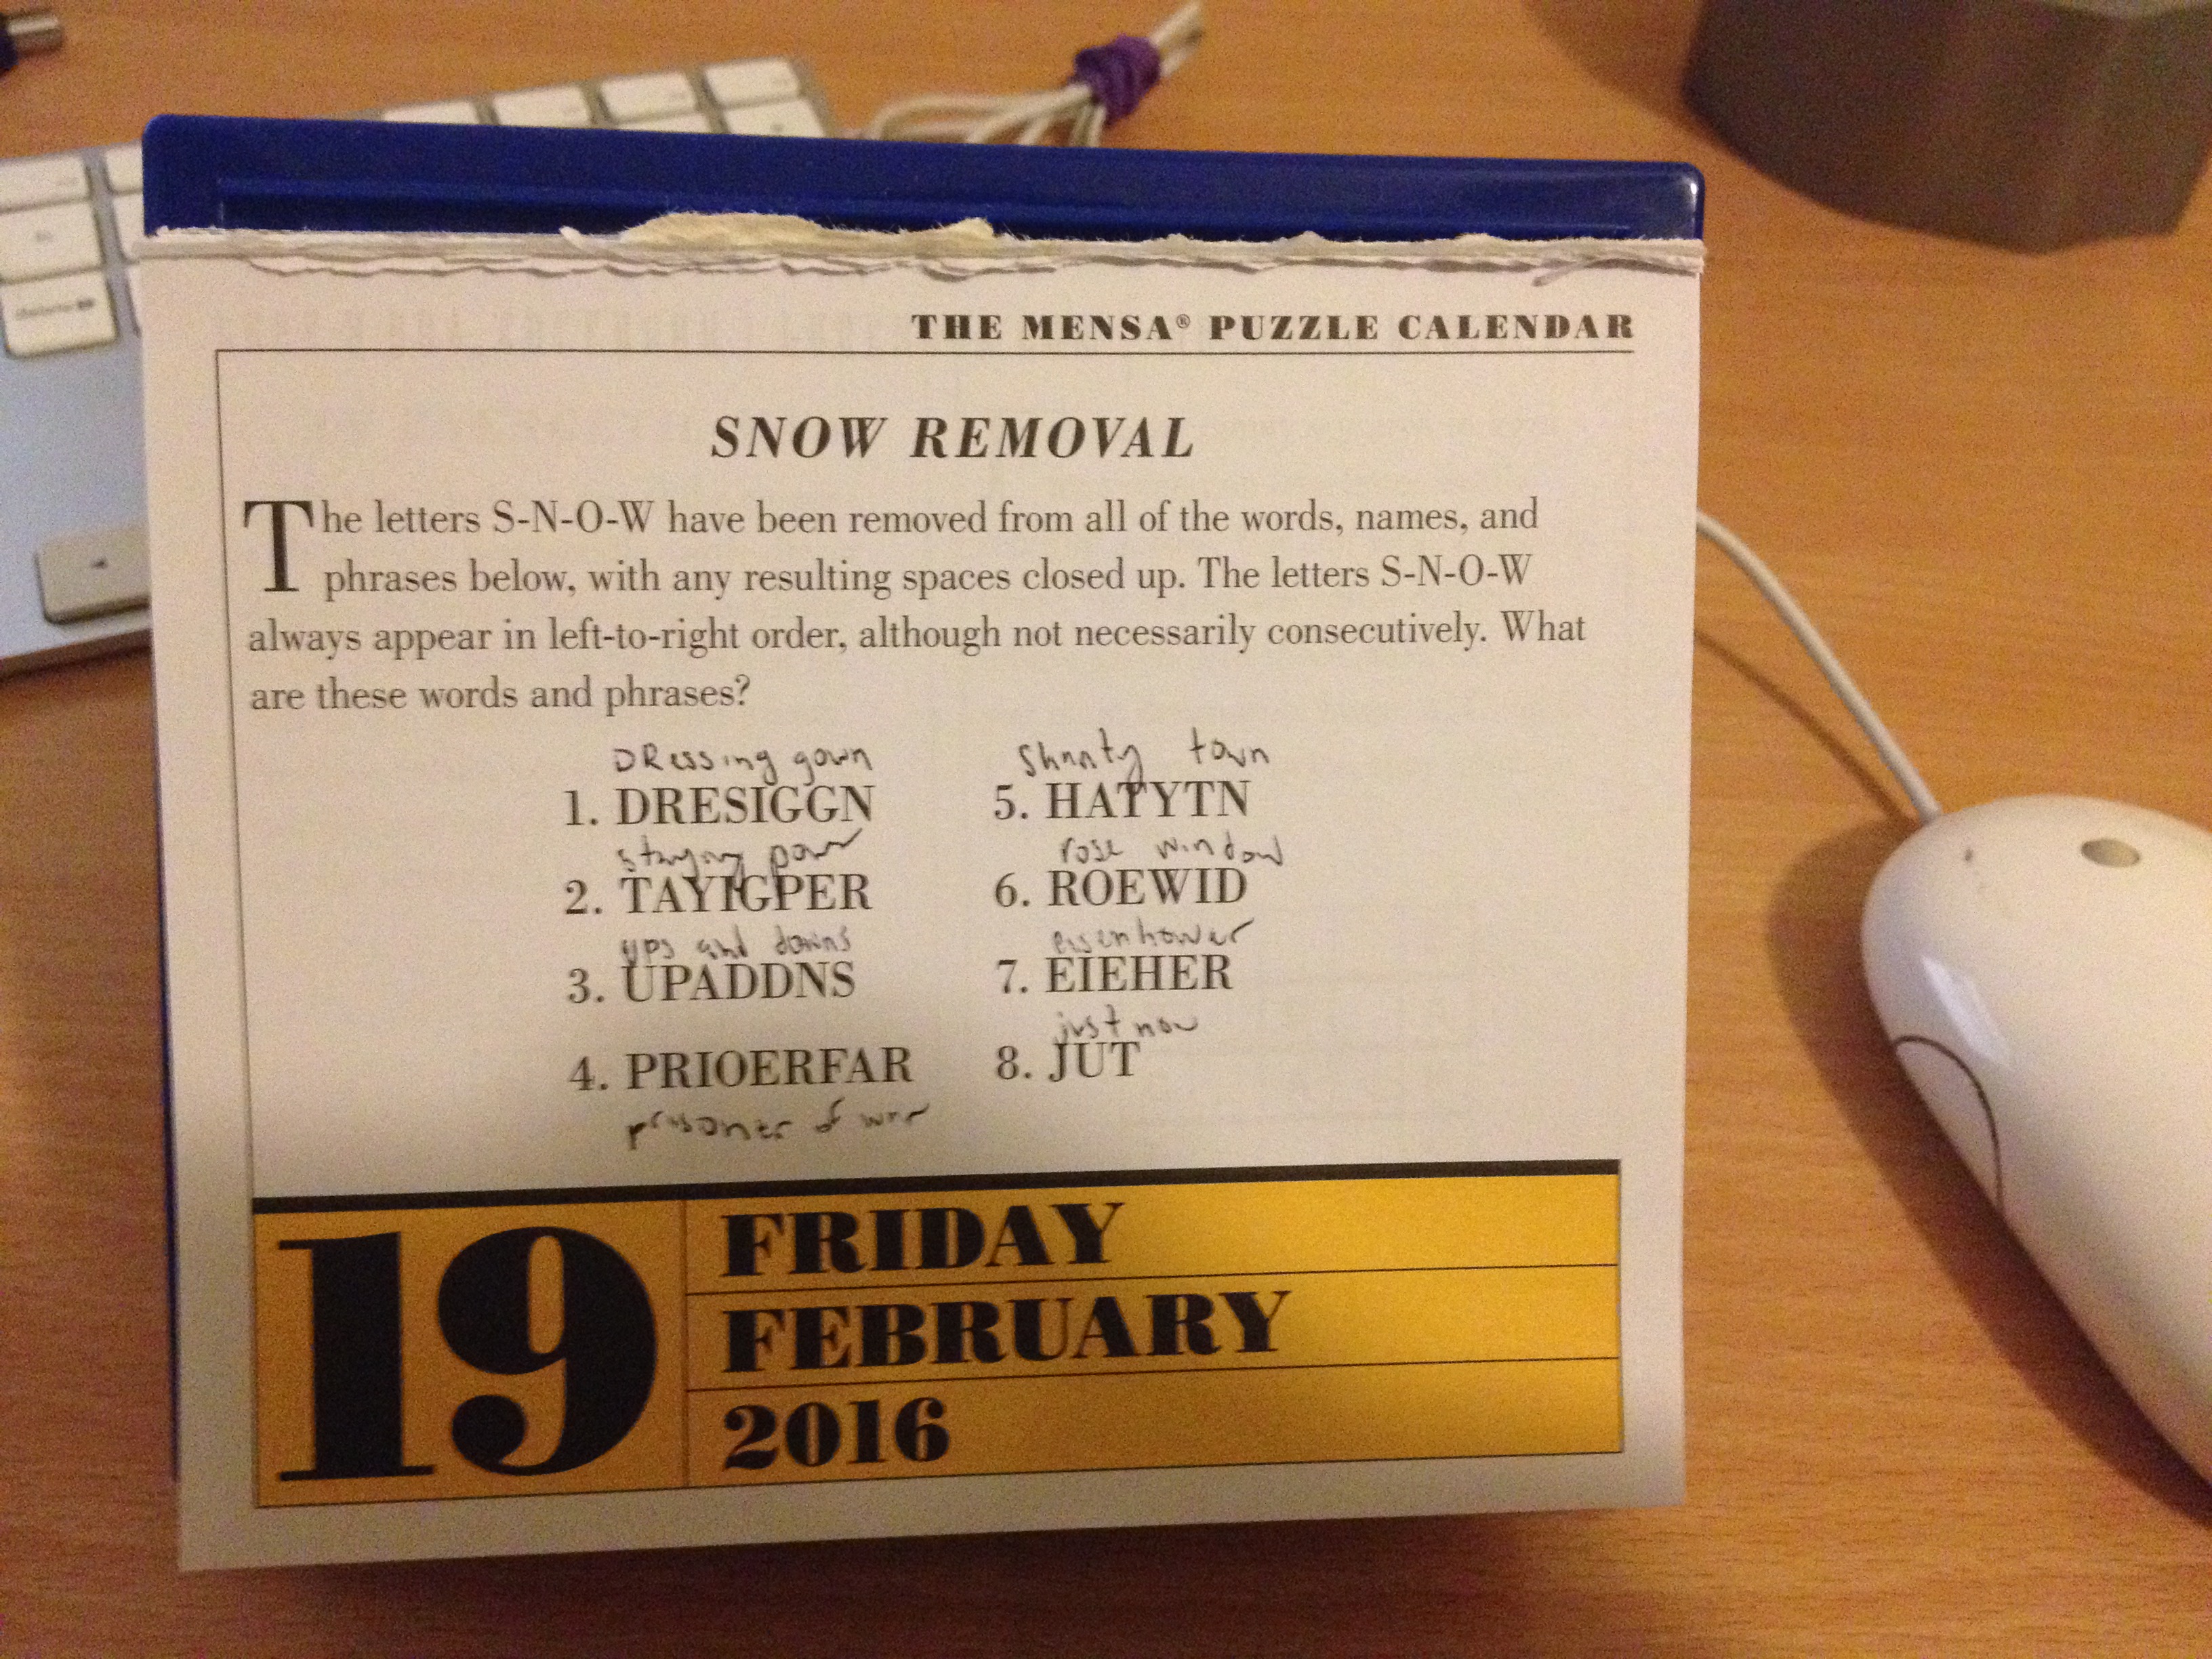 THE MENSA® PUZZLE CALENDAR
SNOW REMOVAL
The letters S-N-O-W have been removed from all of the words, names, and
phrases below, with any resulting spaces closed up. The letters S-N-O-W
always appear in left-to-right order, although not necessarily consecutively. What
are these words and phrases?
Dressing gown
1. DRESIGGN
staying power
2. TAYIGPER
ups and downs
3. UPADDNS
4. PRIOERFAR
prisoner of war
Shanty town
5. HATYTN
rose window
6. ROEWID
eisenhower
7. EIEHER
just now
8. JUT
19
FRIDAY
FEBRUARY
2016